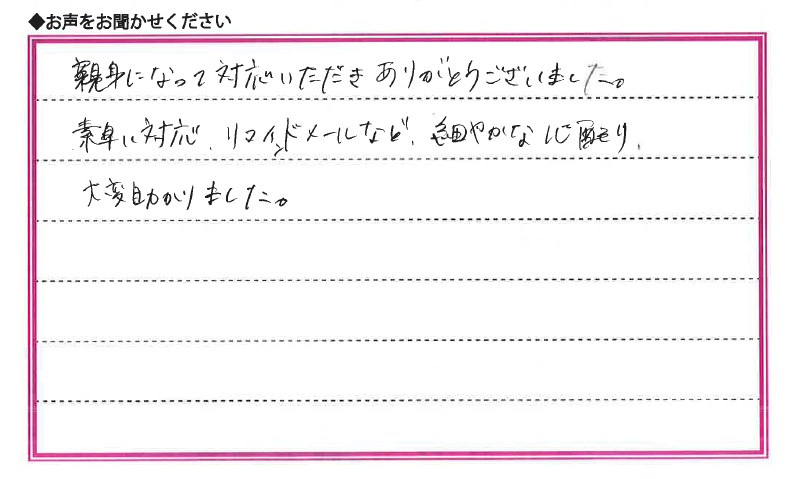 ◆お声をお聞かせください
親身になって対応いただきありがとうございました。
素早い対応、リマインドメールなど、細やかな心配り、
大変助かりました。